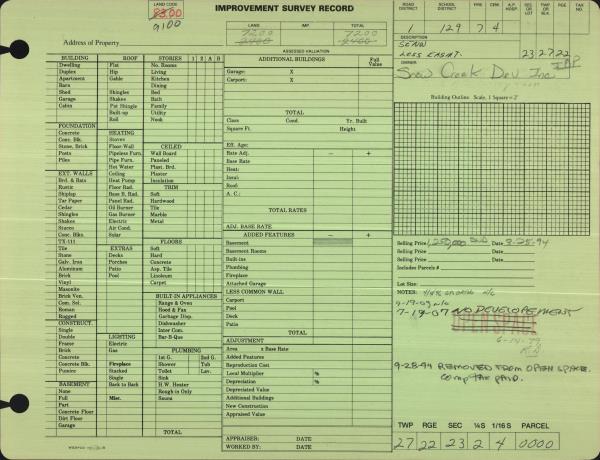 LAND NO.
8300
9100
IMPROVEMENT SURVEY RECORD
LAND IMP. TOTAL
7200 7200
Address of Property
ASSESSED VALUATION
ROAD DISTRICT SCHOOL DISTRICT FIRE CEM. A.P. HOSP.
1 129 7 4
SEC OR LOT TWP OR BLK RGE TAX NO.
23-27-22
DESCRIPTION
SENW
LESS EASMT.
OWNER
Snow Creek Dev Inc
BUILDING ROOF STORIES 1 2 A B
Dwelling Flat No. Rooms
Duplex Hip Living
Apartment Gable Kitchen
Bath
Barn Dining
Shed Shingles Bed
Garage Shakes Bath
Cabin Pat Shingle Family
Built-up Utility
Roll Nook
FOUNDATION
Concrete HEATING
Conc. Blk. Stoves CEILED
Stone, Brick Floor-Wall Wall Board
Posts Pipeless Furn. Paneled
Piles Pipe Furn. Plast. Brd.
Hot Water Plaster
EXT. WALLS Ceiling Insulation
Brd. & Bats Heat Pump
Rustic Floor Rad. TRIM
Shiplap Base B. Rad. Soft
Tar Paper Panel Rad. Hardwood
Cedar Oil Burner Tile
Shingles Gas Burner Marble
Shakes Electric Metal
Stucco Air Cond.
Conc. Blks. Solar
TX-111 FLOORS
Tile EXTRAS Soft
Stone Decks Hard
Galv. Iron Porches Concrete
Aluminum Patio Asp. Tile
Brick Pool Linoleum
Vinyl Carpet
Masonite
Brick Ven. BUILT-IN APPLIANCES
Com. Sel. Range & Oven
Roman Hood & Fan
Rugged Garbage Disp.
CONSTRUCT. Dishwasher
Single Inter Com.
Double LIGHTING Bar-B-Que
Frame Electric
Brick Gas PLUMBING
Concrete 1st G. 2nd G.
Concrete Blk. Fireplace Shower Tub
Pumice Stacked Toilet Lav.
Single Sink
BASEMENT Back to Back H.W. Heater
Full Misc. Rough in Only
Part Sauna
Concrete Floor
Dirt Floor
Garage TOTAL
ADDITIONAL BUILDINGS Full Value
Garage: X
Carport: X
TOTAL
Class Cond. Yr. Built
Square Ft. Height
Eff. Age:
Rate Adj. − +
Base Rate
Heat:
Insul:
Roof:
A. C.:
TOTAL RATES
ADJ. BASE RATE
ADDED FEATURES − +
Basement
Basement Rooms
Built-ins
Plumbing
Fireplace
Attached Garage
LESS COMMON WALL
Carport
Pool
Deck
Patio
TOTAL
ADJUSTMENT
Area x Base Rate
Added Features
Reproduction Cost
Local Multiplier %
Depreciation %
Depreciated Value
Additional Buildings
New Construction
Appraised Value
APPRAISER: DATE
WORKED BY: DATE
Building Outline Scale, 1 Square =
Selling Price 1,250,000 Date 3-25-94
Selling Price Date
Selling Price Date
Includes Parcels #
Lot Size:
NOTES:
9-19-03 n/c
7-19-07 NO DEVELOPEMENT
OPEN SPACE
9-28-94 REMOVED FROM OPEN SPACE.
COMP TAX PAID.
TWP RGE SEC ¼S 1/16 S PARCEL
27 22 23 2 4 0000